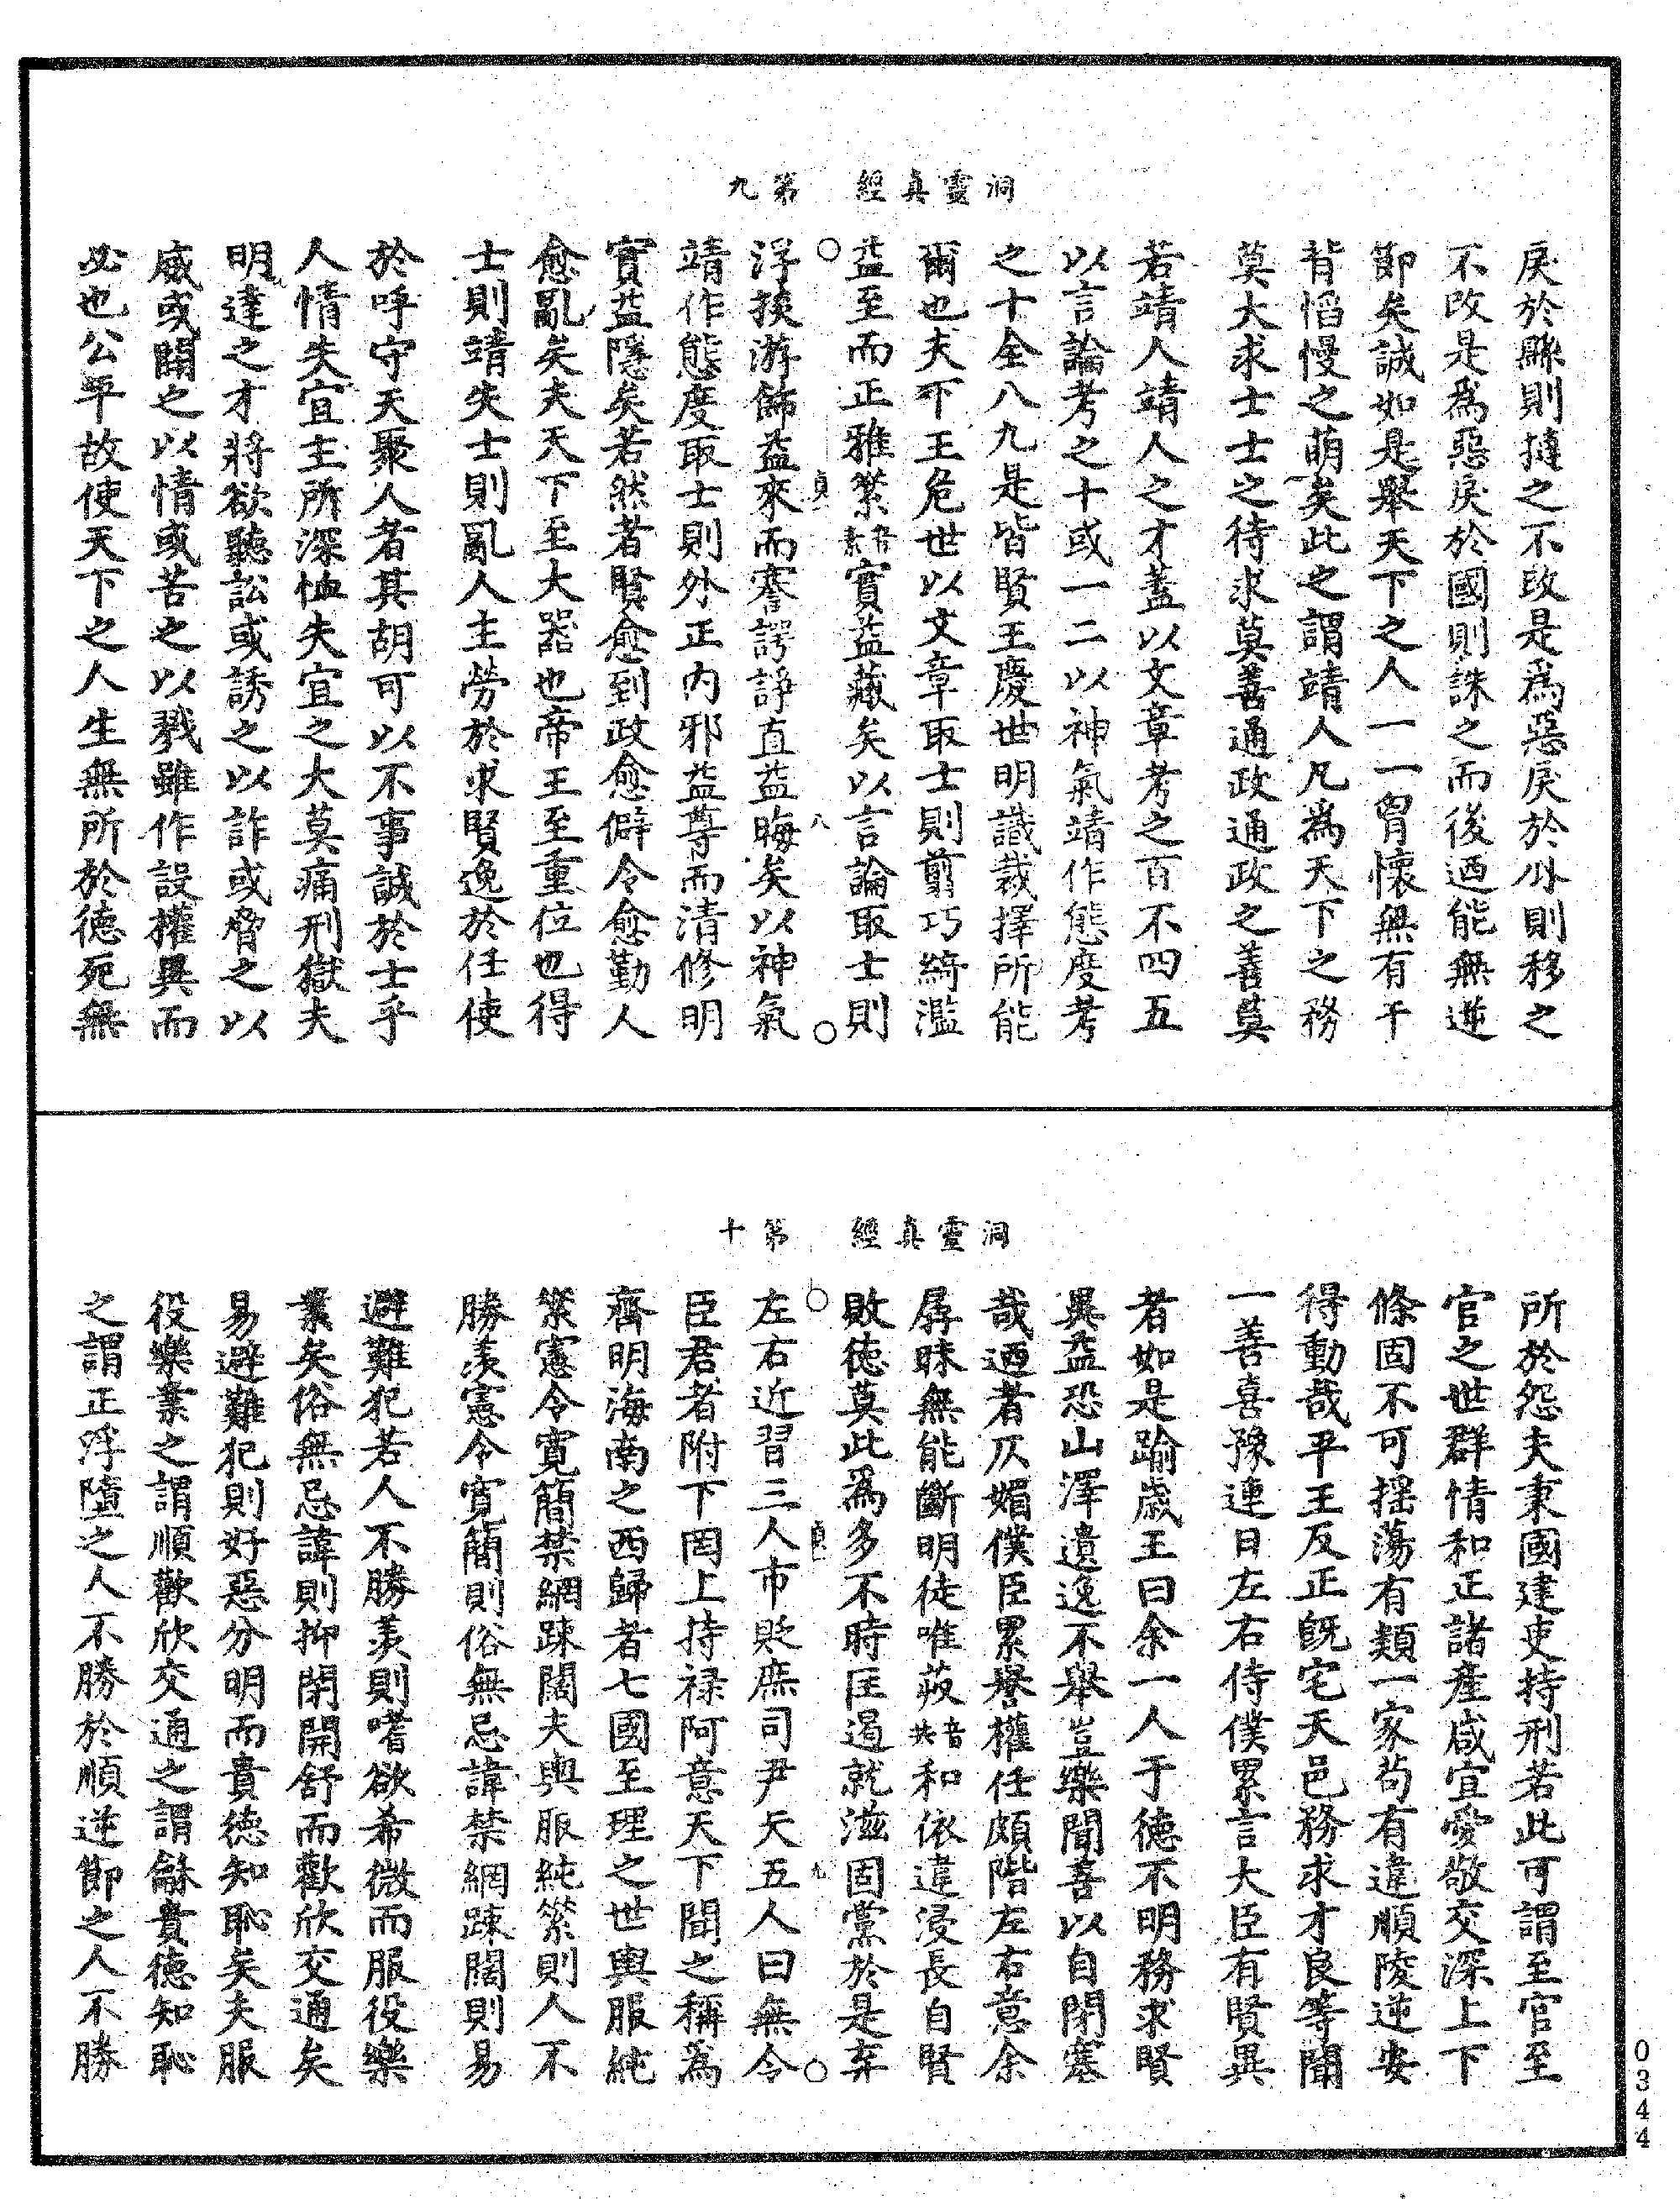 洞靈真經　第九
戾於縣則撻之不改是爲惡戾於州則移之
不改是爲惡戾於國則誅之而後迺能無逆
節矣誠如是舉天下之人一一胷懷無有干
背慆慢之萌矣此之謂靖人凡爲天下之務
莫大求士士之待求莫善通政通政之善莫
若靖人靖人之才蓋以文章考之百不四五
以言論考之十或一二以神氣靖作態度考
之十全八九是皆賢王慶世明識裁擇所能
爾也夫下王危世以文章取士則剪巧綺濫
益至而正雅縈音素實益藏矣以言論取士則
貞二　八
浮掞游飾益來而謇諤諍直益晦矣以神氣
靖作態度取士則外正内邪益尊而清修明
實益隱矣若然者賢愈到政愈僻令愈勤人
愈亂矣夫天下至大器也帝王至重位也得
士則靖失士則亂人主勞於求賢逸於任使
於呼守天聚人者其胡可以不事誠於士乎
人情失宜主所深恤失宜之大莫痛刑獄夫
明達之才將欲聽訟或誘之以詐或脅之以
威或開之以情或苦之以戮雖作設權異而
必也公平故使天下之人生無所於德死無
洞靈真經　第十
所於怨夫秉國建吏持刑若此可謂至官至
官之世群情和正諸產咸宜愛敬交深上下
條固不可揺蕩有類一家苟有違順陵逆安
得動哉平王反正旣宅天邑務求才良等聞
一善喜豫連日左右侍僕累言大臣有賢異
者如是踰歲王曰余一人于德不明務求賢
異益恐山澤遺逸不舉豈樂聞善以自閉塞
哉迺者仄媚僕臣累譽權任頗階左右意余
孱昧無能斷明徒唯莰音共和依違浸長自賢
敗德莫此爲多不時匡遏就滋固黨於是弃
貞二　九
左右近習三人市貶庶司尹夭五人曰無令
臣君者附下罔上持禄阿意天下聞之稱爲
齊明海南之西歸者七國至理之世輿服純
縈憲令寛簡禁網踈闊夫輿服純縈則人不
勝羨憲令寛簡則俗無忌諱禁網踈闊則易
避難犯若人不勝羨則嗜欲希微而服役樂
業矣俗無忌諱則抑閉開舒而歡欣交通矣
易避難犯則好惡分明而貴德知恥矣夫服
役樂業之謂順歡欣交通之謂龢貴德知恥
之謂正浮墮之人不勝於順逆節之人不勝
0344